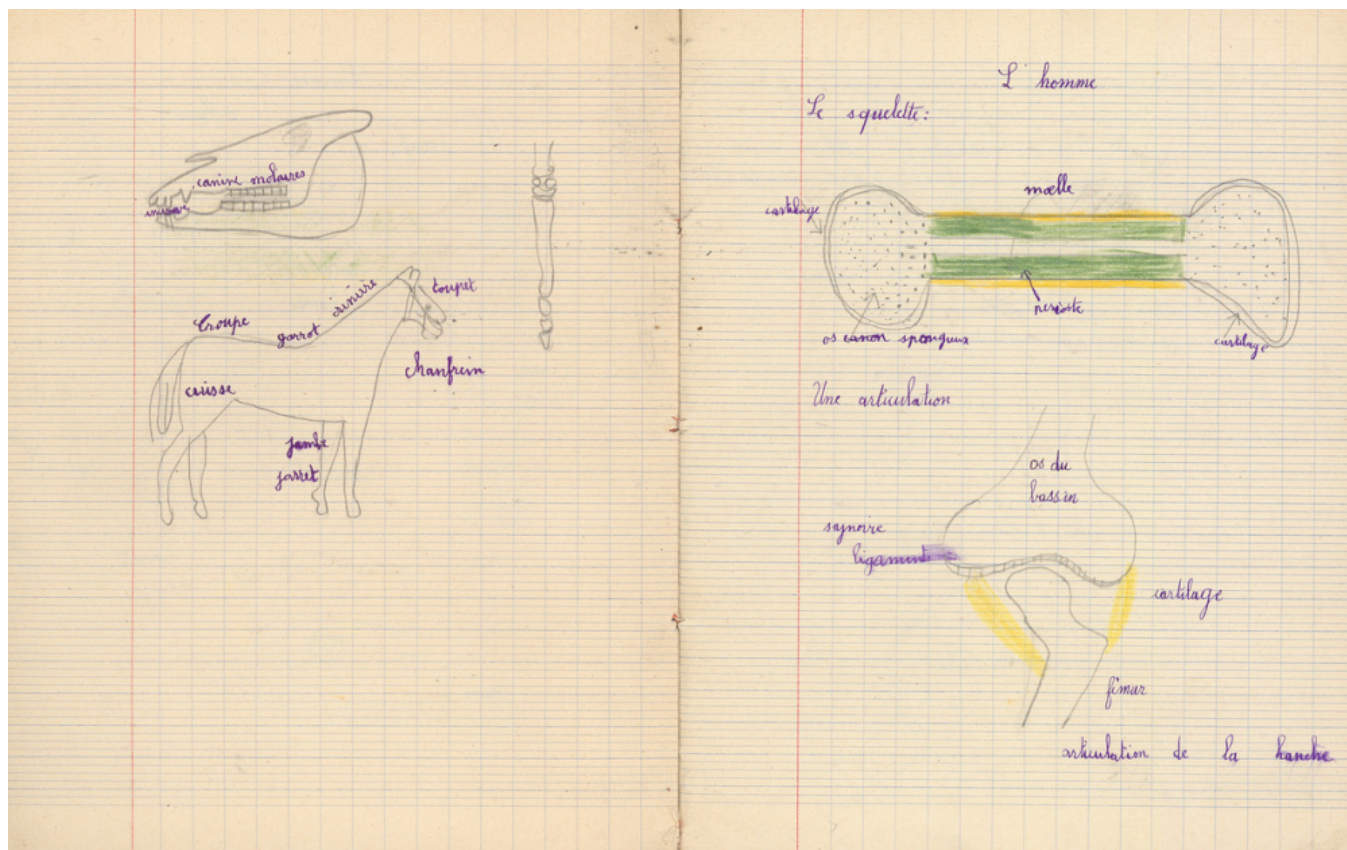 canine molaires
incisive
toupet
crinière
Croupe
garrot
chanfrein
cuisse
jambe
jarret
L'homme
Le squelette:
moelle
cartilage
périoste
os canon spongieux
cartilage
Une articulation
os du
bassin
synovie
ligament
cartilage
fémur
articulation de la hanche